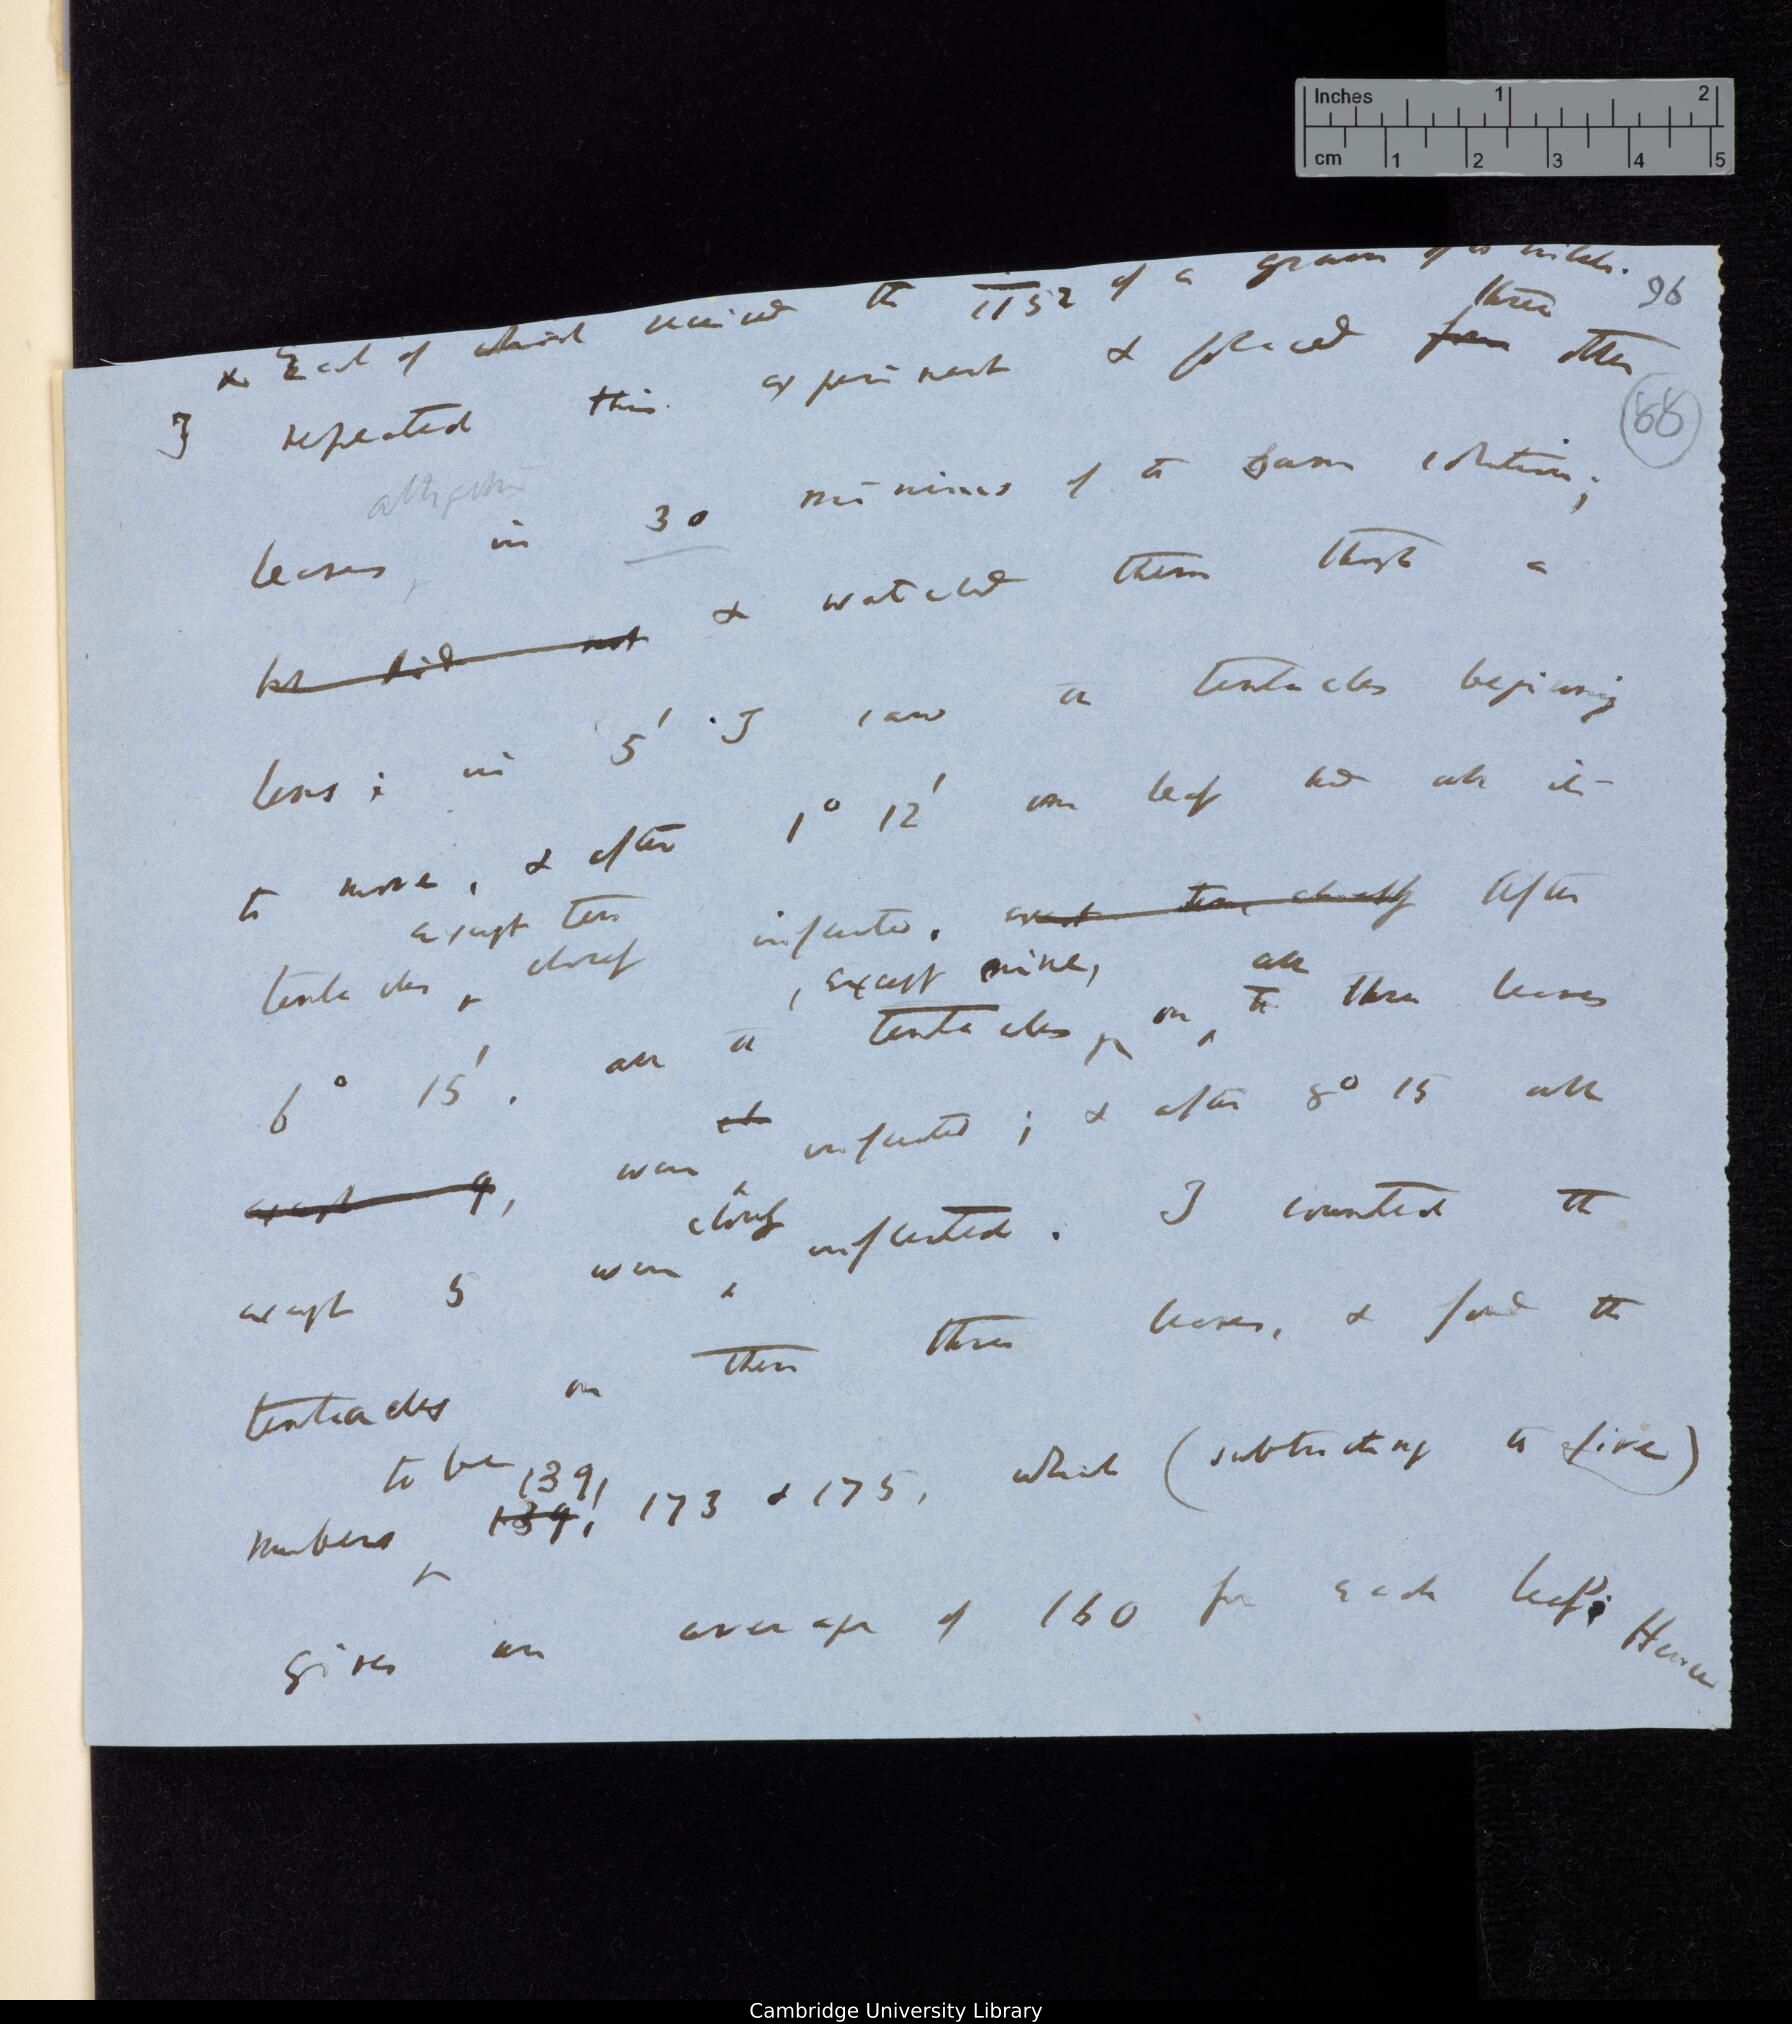 Inches 1 2
cm 1 2 3 4 5
96
x Each of which received the 1/1152 of a grain of
three
I repeated this experiment & placed four other
88
altogether
leaves in 30 minims of the same solution;
but did not & watched them through a
lens; in 5' I saw the tentacles beginning
to move, & after 1° 12' one leaf had all its
except ten
tentacles, closely inflected. except ten closely After
, except nine, all
6° 15'. all the tentacles, on the three leaves
except 9, were inflected; & after 8° 15 all
closely
except 5 were inflected. I counted the
tentacles on these three leaves, & found the
to be 139,
numbers 139, 173 & 175, which (subtracting the five)
gives an average of 160 for each leaf; Hence
Cambridge University Library